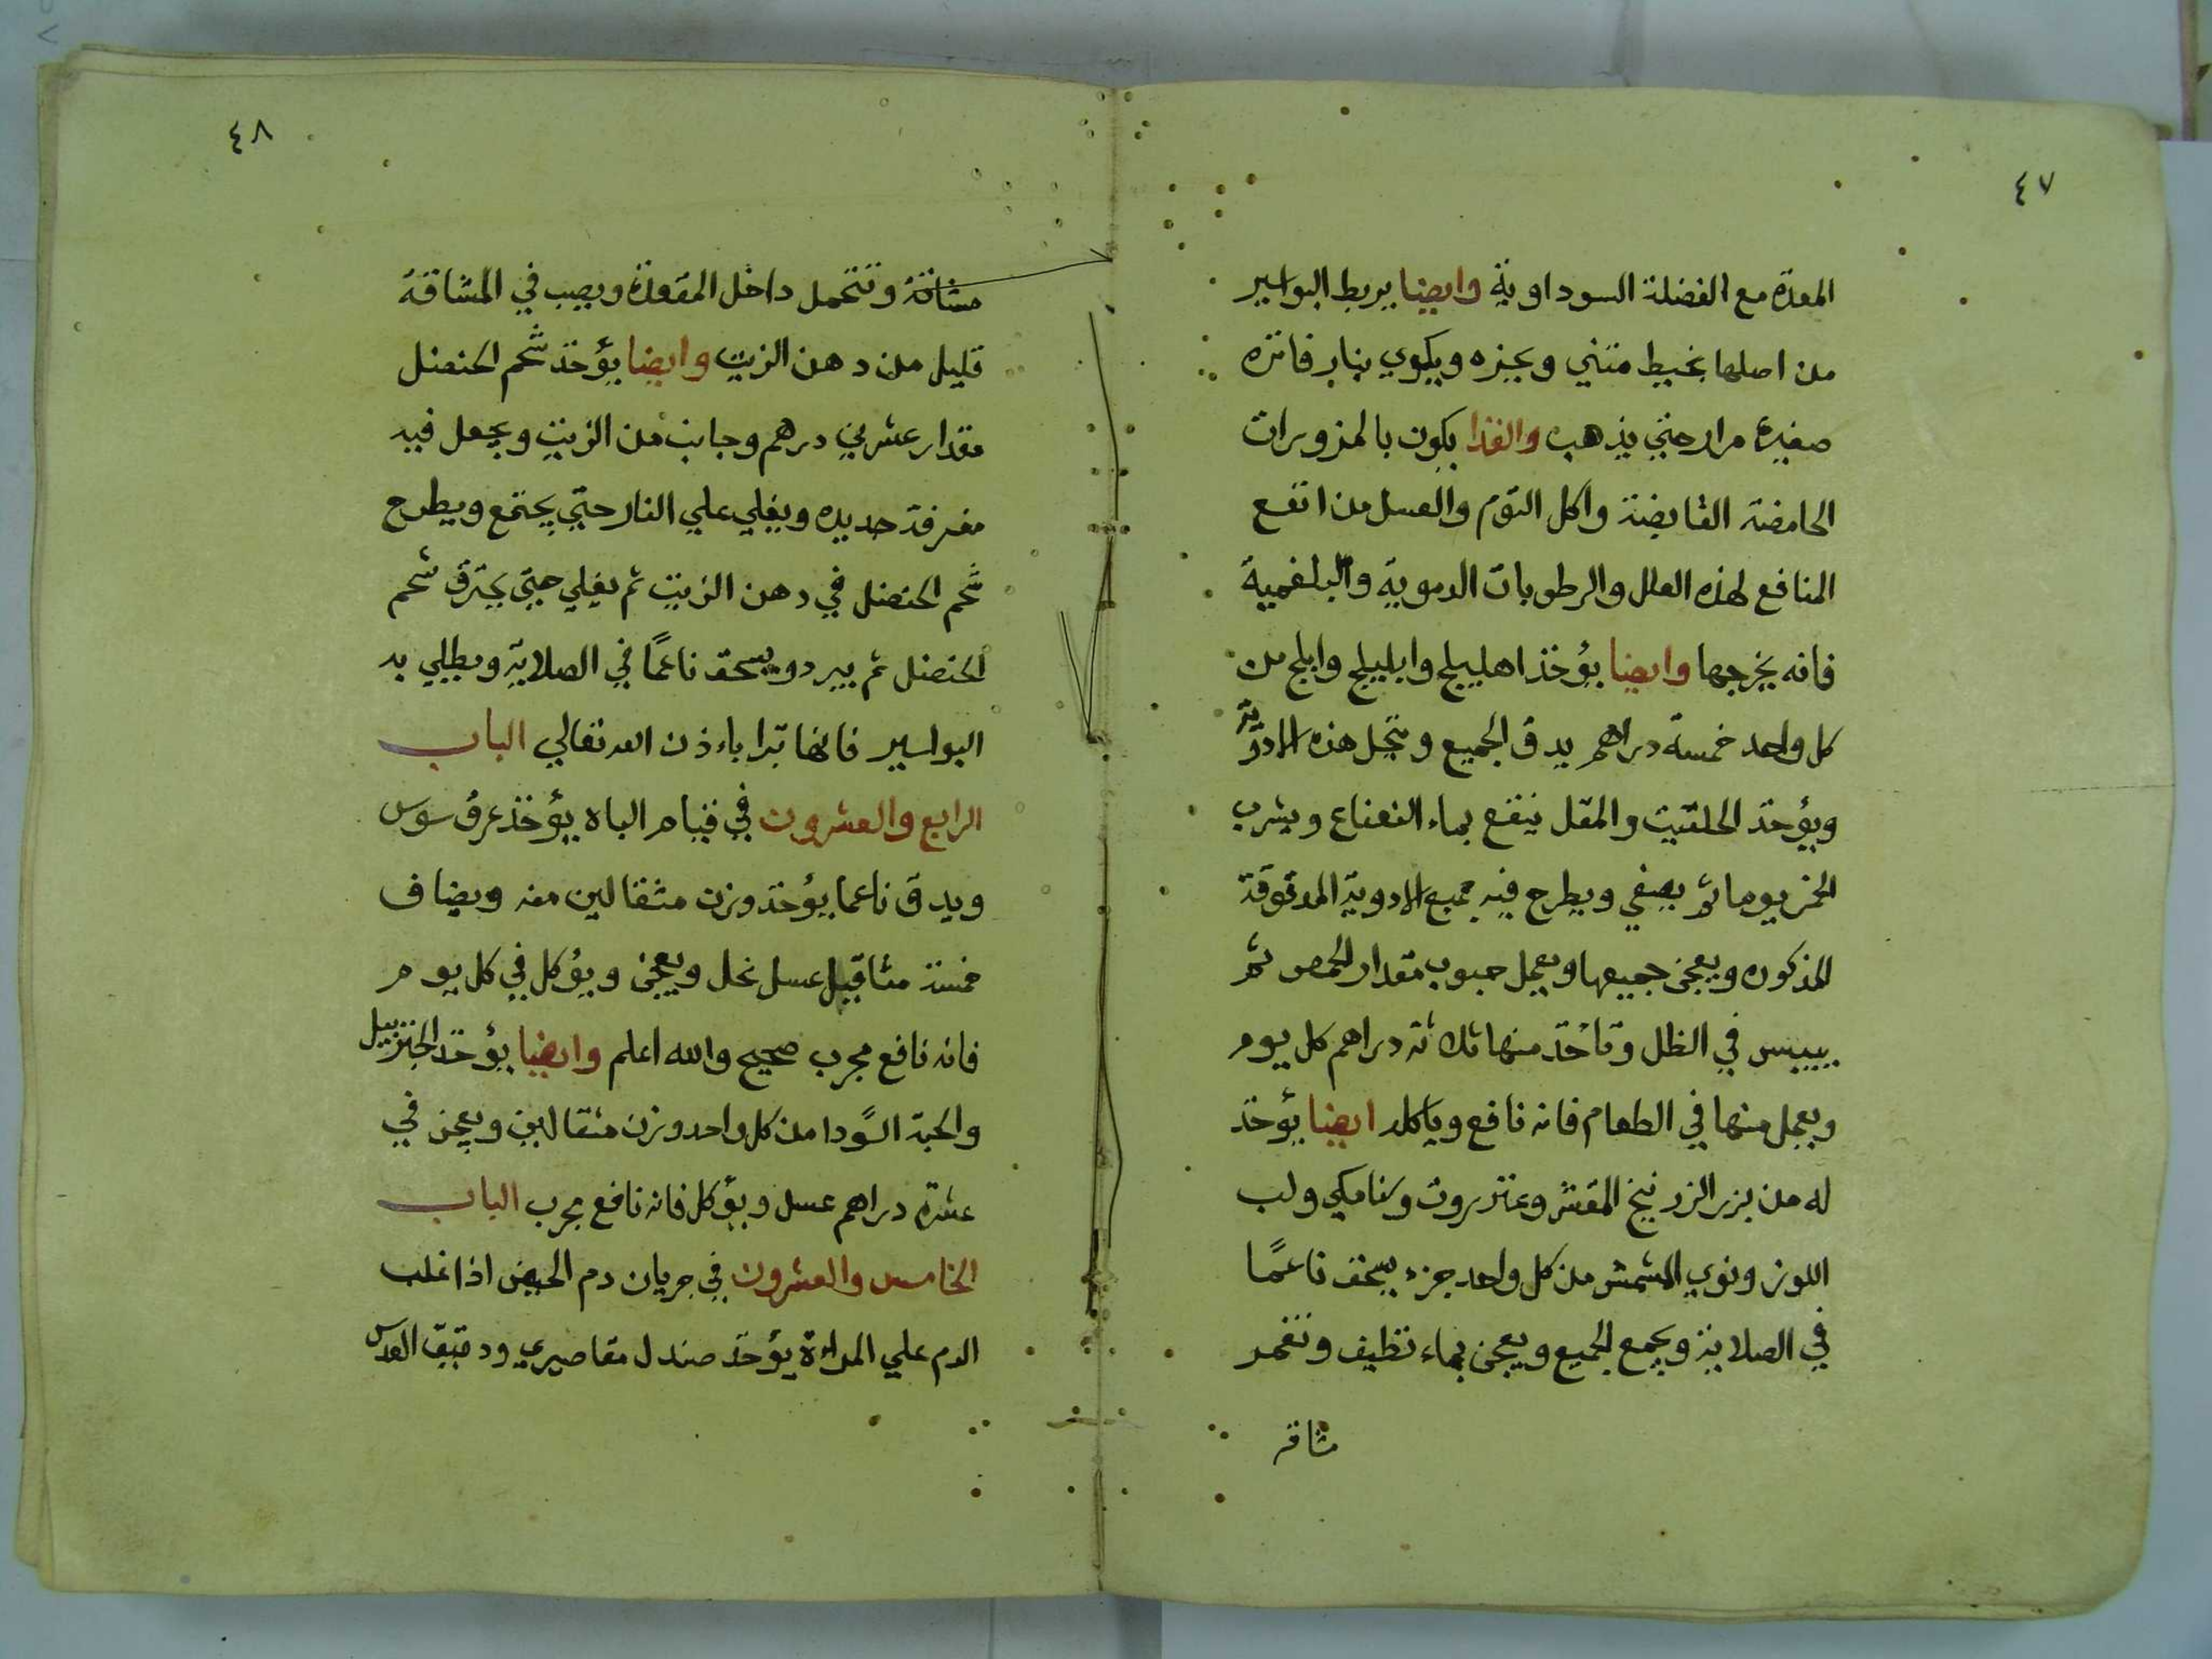 ٤٧
المعدة مع الفضلة السوداوية وايضا يربط البواسير
من اصلها بخيط متني ويجزه ويكوي بنار فاتره
صغيرة مرار حتي يذهب والغذا يكون بالمزورات
الحامضة القابضة واكل الثوم والعسل من انفع
المنافع لهذه العلل والرطوبات الدموية والبلغمية
فانه يخرجها وايضا يؤخذ اهليلج وابليلج واملج من
كل واحد خمسة دراهم يدق الجميع وينخل هذه الادوية
ويؤخذ الحلتيت والمقل ينقع بماء النعناع ويشرب
الخمر يوما ثم يصفي ويطرح فيه جميع الادوية المدقوقة
المذكوره ويعجن جميعها ويعمل حبوب مقدار الحمص ثم
ييبس في الظل وتاخذ منها ثلاثة دراهم كل يوم
ويعمل منها في الطعام فانه نافع وياكله ايضا يؤخذ
له من بزر الزرنيخ المقشر وعنزروت وسنامكي ولب
اللوز ونوي المشمش من كل واحد جزء يسحق ناعمًا
في الصلاية ويجمع الجميع ويعجن بماء نظيف وتغمر
مشاقة
٤٨
مشاقة وتتحمل داخل المقعدة ويصب في المشاقة
قليل من دهن الزيت وايضا يؤخذ شحم الحنضل
مقدار عشرين درهم وجانب من الزيت ويجعل فيه
مغرفة حديده ويغلي علي النار حتي يجتمع ويطرح
شحم الحنضل في دهن الزيت ثم يغلي حتي يحترق شحم
الحنضل ثم يبرد ويسحق ناعمًا في الصلاية ويطلي به
البواسير فانها تبرا باءذن الله تعالي الباب
الرابع والعشرون في قيام الباه يؤخذ عرق سوس
ويدق ناعما يؤخذ وزن مثقالين منه ويضاف
خمسة مثاقيل عسل نحل ويعجن ويؤكل في كل يوم
فانه نافع مجرب صحيح والله اعلم وايضا يؤخذ الجنزبيل
والحبة السودا من كل واحد وزن مثقالين ويعجن في
عشرة دراهم عسل ويؤكل فانه نافع مجرب الباب
الخامس والعشرون في جريان دم الحيض اذا غلب
الدم علي المراءة يؤخذ صندل مقاصيري ودقيق العدس